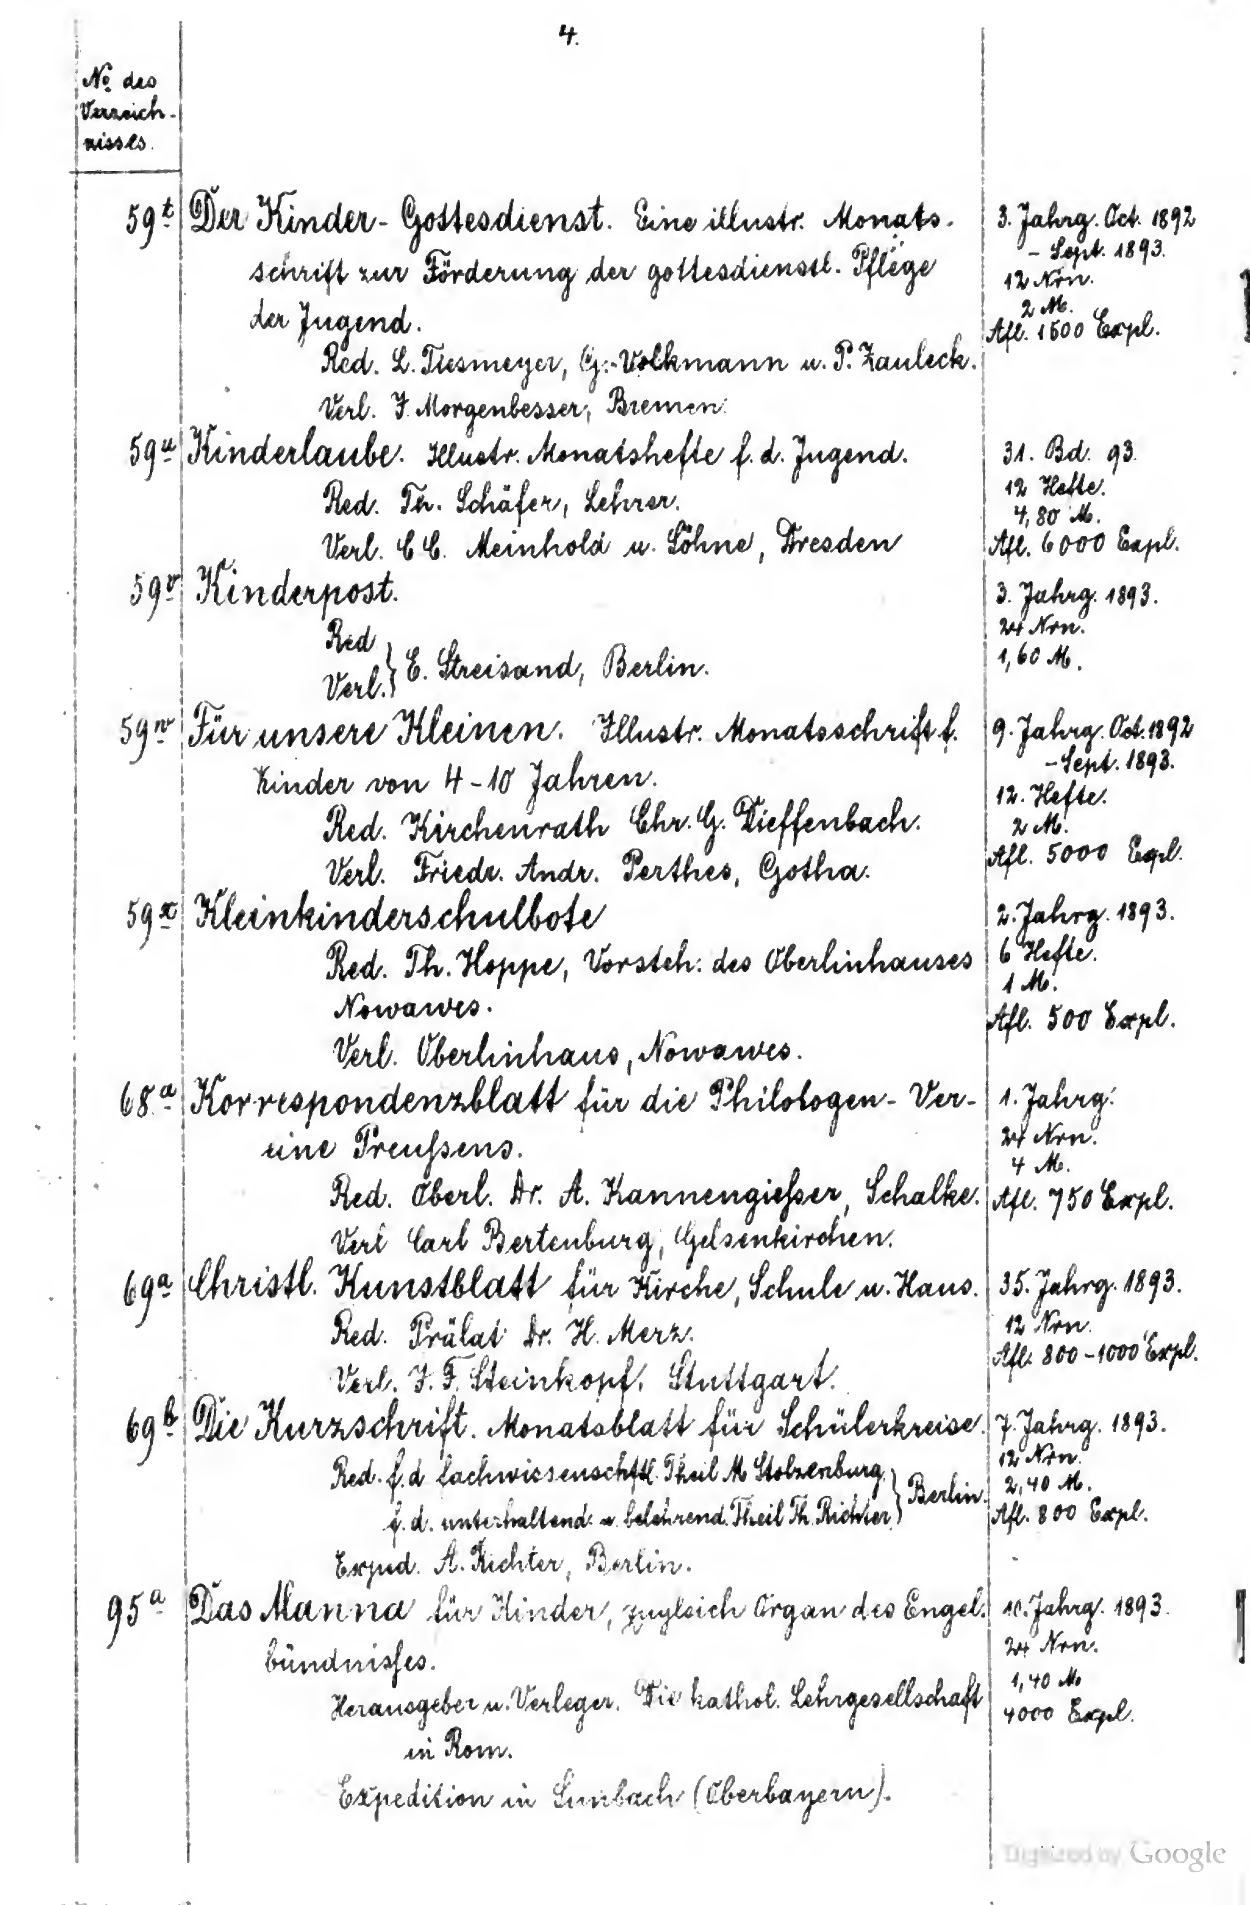 4.
No. des
Verzeich-
nisses.
59t Der Kinder-Gottesdienst. Eine illustr. Monats-
schrift zur Förderung der gottesdienstl. Pflege
der Jugend.
Red. L. Tiesmeyer, G. Volkmann u. P. Zauleck.
Verl. J. Morgenbesser, Bremen.
3. Jahrg. Oct. 1892
- Sept. 1893.
12 Nrn.
2 M.
Afl. 1500 Expl.
59u Kinderlaube. Illustr. Monatshefte f. d. Jugend.
Red. Th. Schäfer, Lehrer.
Verl. C C. Meinhold u. Söhne, Dresden
31. Bd. 93.
12 Hefte.
4,80 M.
Afl. 6000 Expl.
59v Kinderpost.
Red
Verl. } E. Streisand, Berlin.
3. Jahrg. 1893.
24 Nrn.
1,60 M.
59w Für unsere Kleinen. Illustr. Monatsschrift f.
Kinder von 4-10 Jahren.
Red. Kirchenrath Chr. G. Dieffenbach.
Verl. Friedr. Andr. Perthes, Gotha.
9. Jahrg. Oct. 1892
- Sept. 1893.
12. Hefte.
2 M.
Afl. 5000 Expl.
59x Kleinkinderschulbote
Red. Th. Hoppe, Vorsteh. des Oberlinhauses
Nowawes.
Verl. Oberlinhaus, Nowawes.
2. Jahrg. 1893.
6 Hefte.
1 M.
Afl. 500 Expl.
68a Korrespondenzblatt für die Philologen-Ver-
eine Preußens.
Red. Oberl. Dr. A. Kannengießer, Schalke.
Verl Carl Bertenburg, Gelsenkirchen.
1. Jahrg.
24 Nrn.
4 M.
Afl. 750 Expl.
69a Christl. Kunstblatt für Kirche, Schule u. Haus.
Red. Prälat Dr. H. Merz.
Verl. J. F. Steinkopf, Stuttgart.
35. Jahrg. 1893.
12 Nrn.
Afl. 800-1000 Expl.
69b Die Kurzschrift. Monatsblatt für Schülerkreise.
Red. f. d fachwissenschftl. Theil M Stolzenburg
f. d. unterhaltend. u. belehrend. Theil Th. Richter } Berlin.
Exped. A. Richter, Berlin.
7. Jahrg. 1893.
12 Nrn.
2,40 M.
Afl. 800 Expl.
95a Das Manna für Kinder, zugleich Organ des Engel-
bündnißes.
Herausgeber u. Verleger. Die kathol. Lehrgesellschaft
in Rom.
Expedition in (Oberbayern).
10. Jahrg. 1893.
24 Nrn.
1,40 M
4000 Expl.
Digitized by Google